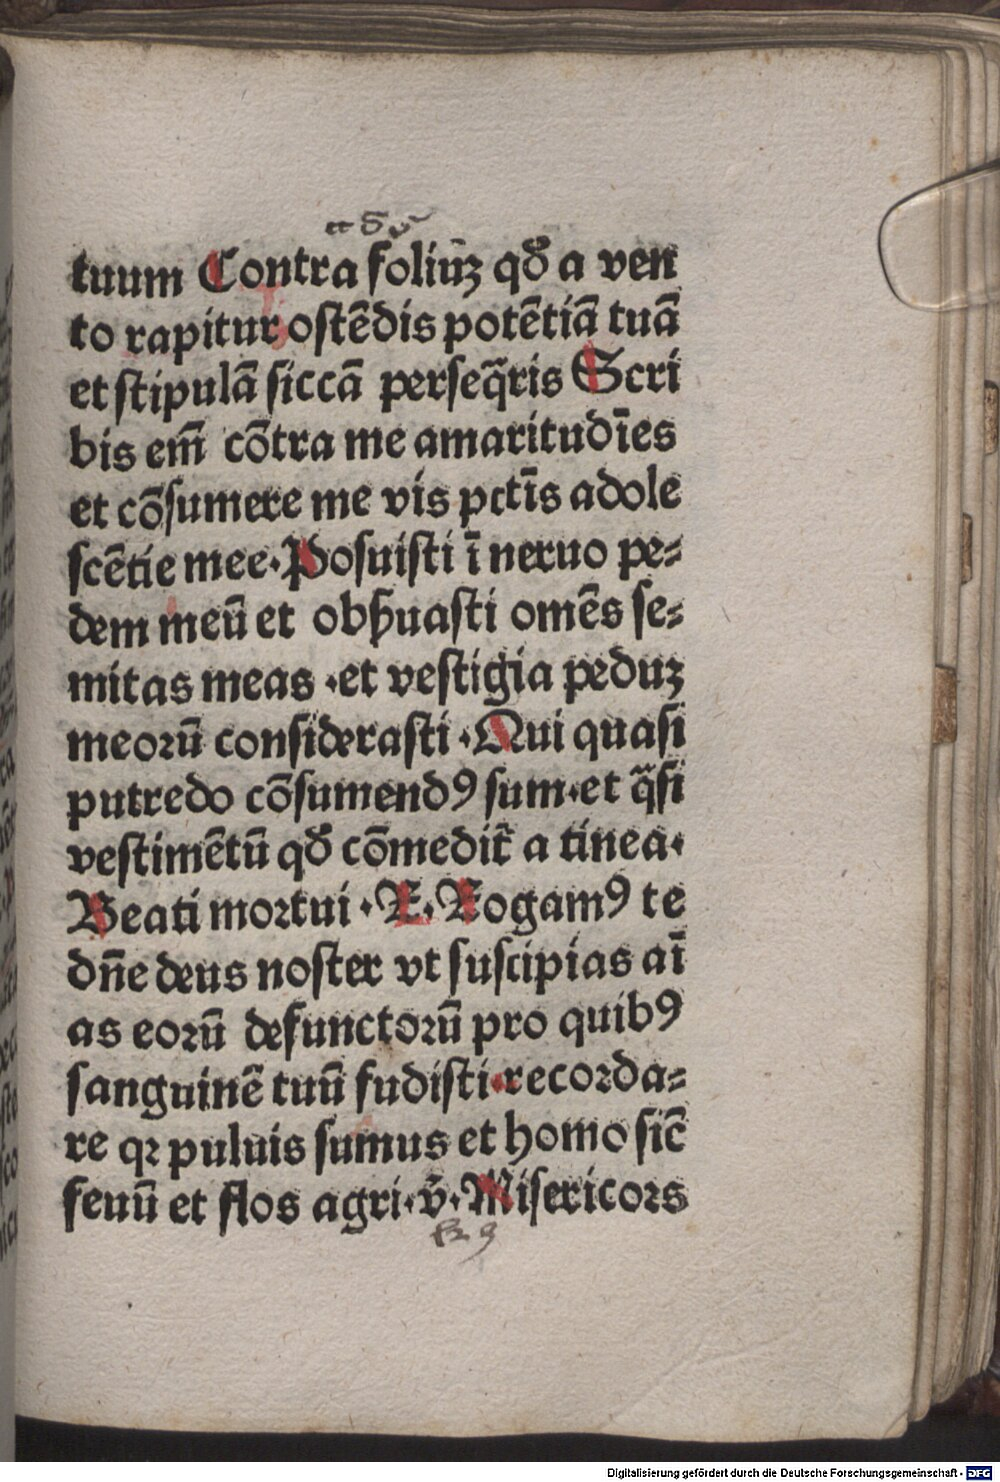 tuum Contra foliūꝫ qđ a ven
to rapitur ostēdis potētiā tuā
et stipulā siccā perseq̄ris Scri
bis em̄ cōtra me amaritudīes
et cōsumere me vis pctīs adole
scētie mee·Posuisti ī neruo pe⸗
dem meū et obẜuasti omēs se⸗
mitas meas ·et vestigia peduꝫ
meorū considerasti ·Qui quasi
putredo cōsumendꝰ sum·et q̄si
vestimētū qđ cōmedit̄ a tinea·
Beati mortui ·R·Rogamꝰ te
dn̄e deus noster vt suscipias aī
as eorū defunctorū pro quibꝰ
sanguinē tuū fudisti·recorda⸗
re qꝛ puluis sumus et homo sic̄
fenū et flos agri·v̄·Misericors
Digitalisierung gefördert durch die Deutsche Forschungsgemeinschaft - DFG